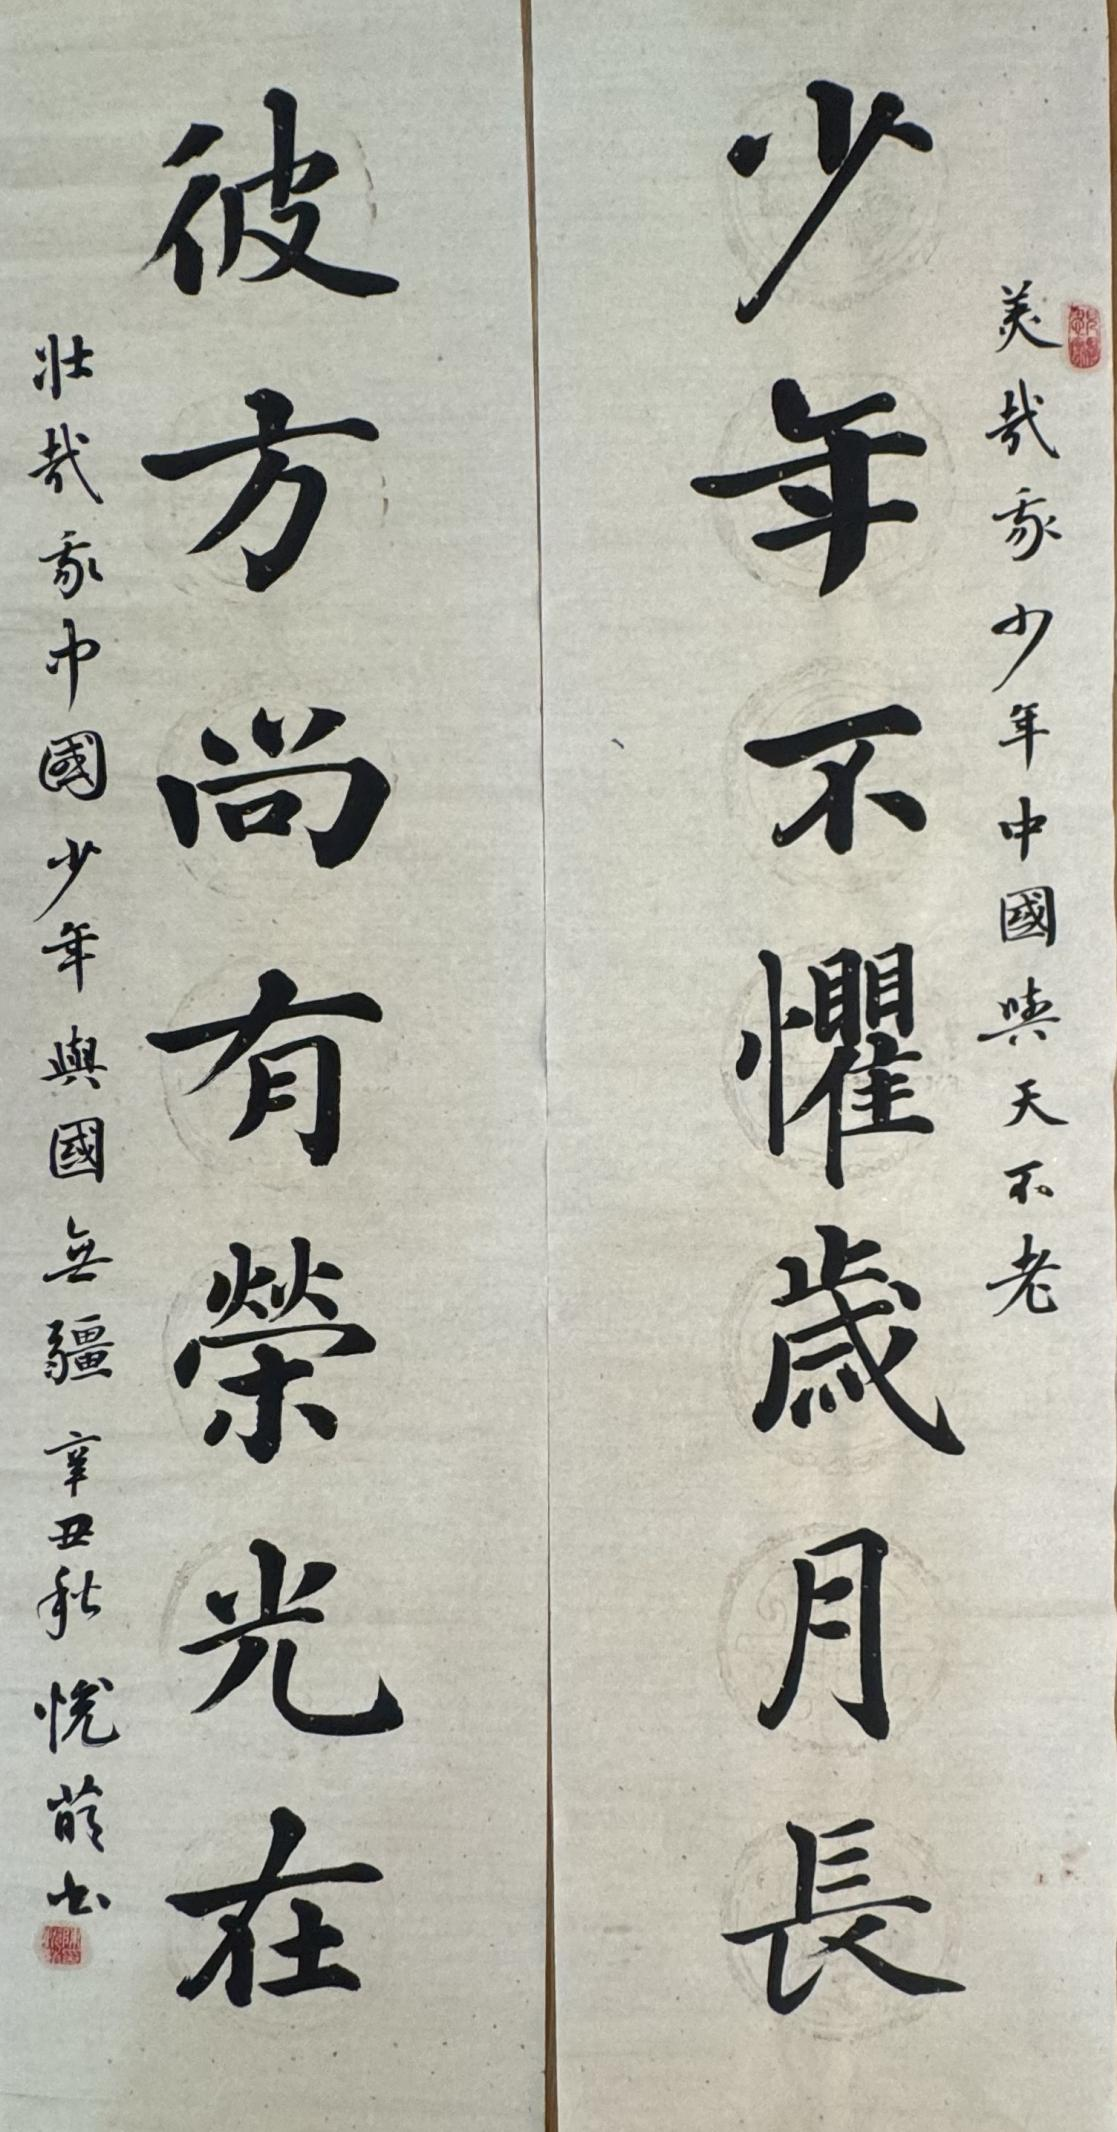 美哉我少年中國與天不老
少年不懼歲月長
彼方尚有榮光在
壯哉我中國少年與國無疆 辛丑秋 悅萌書